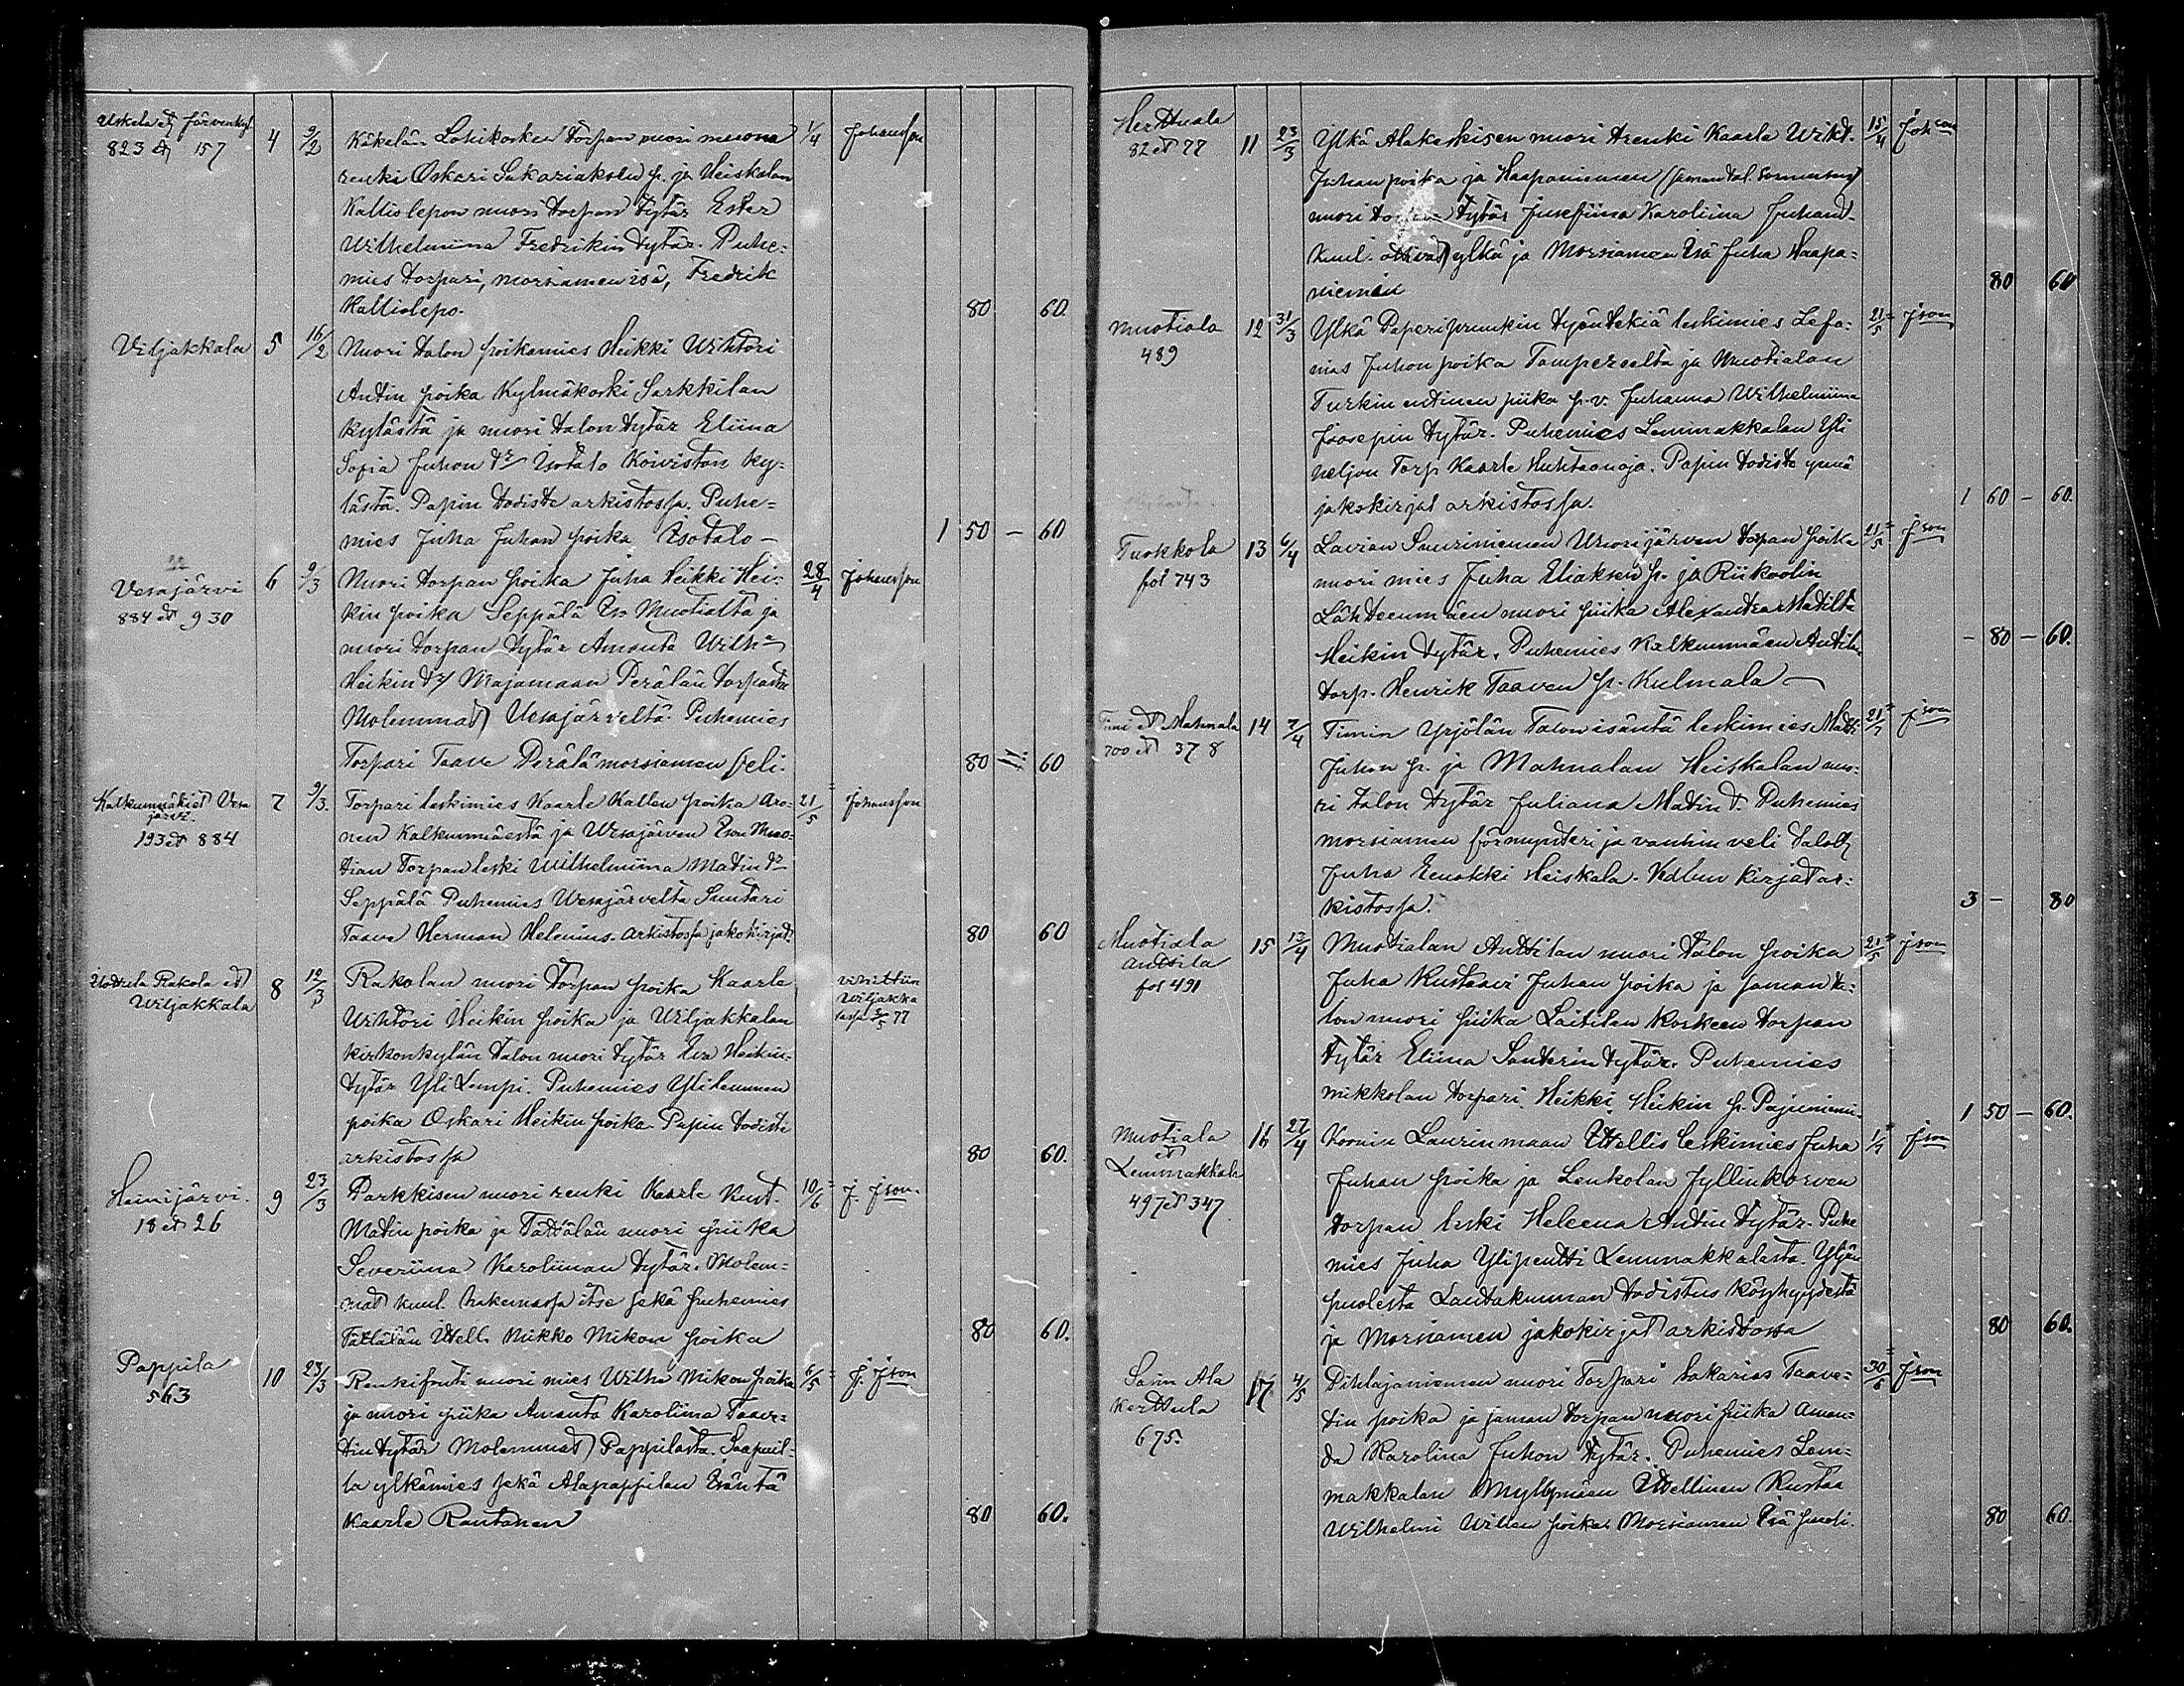 Uskela et Järvenkyl.
823 et 157
4
9/2
Käkelän Lohikosken torpan nuori
renki Oskari Sakariaksen p. ja Heiskalan
Kalliolepon nuori torpan tytär Ester
Wilhelmiina Fredrikin tytär. Puhe=
mies torpari, morsiamen isä, Fredrik
Kalliolepo.
1/4
Johansson
80 60.
Viljakkala
5
16/2
Nuori talon poikamies Heikki Wihtori
Antin poika Kylmäkoski Sarkkilan
kylästä ja nuori talon tytär Eliina
Sofia Juhon tr Isotalo Koiviston ky=
lästä. Papin todiste arkistossa. Puhe=
mies Juha Juhan poika Isotalo —
1 50 — 60
Vesajärvi
884 et 930
6
9/3
Nuori torpan poika Juha Heikki Hei=
kin poika Seppälä Iso Muotialta ja
nuori torpan tytär Amanta Wilh.
Heikin tr Majamaan Perälän torpasta
Molemmat Vesajärveltä. Puhemies
Torpari Taave Perälä morsiamen veli.
28/4
Johansson
80 60
Kalkunmäki et Vesa
järvi.
193 et 884
7
9/3.
Torpari leskimies Kaarle Kallen poika Aro=
nen Kalkunmäestä ja Vesajärven Ison Muo=
tian Torpan leski Wilhelmiina Matin tr
Seppälä Puhemies Vesajärveltä Suutari
Taave Herman Helenius. Arkistossa jakokirjat.
21/5
Johansson
80 60
Rakola et
Viljakkala
8
12/3
Rakolan nuori Torpan poika Kaarle
Wihtori Heikin poika ja Viljakkalan
kirkonkylän talon nuori tytär Eva Heikin
tytär Yli Lempi. Puhemies Ylilemmen
poika Oskari Heikin poika. Papin todiste
arkistossa
vihittiin
Viljakka
lassa 3/5 77
80 60.
Heinijärvi.
18 et 26
9
23/3
Parkkisen nuori renki Kaarle Kust.
Matin poika ja Tattälän nuori piika
Severiina Karoliinan tytär. Molem=
mat kuul. hakemassa itse sekä puhemies
Tattälän Itell. Mikko Mikon poika
10/6
J. Json.
80 60.
Pappila
563
10
23/3
Renkifouti nuori mies Wilho Mikon poika
ja nuori piika Amanta Karoliina Taave=
tin tytär Molemmat Pappilasta. Saapuil=
la ylkämies sekä Alapappilan Isäntä
Kaarle Rautanen
6/5
J. Json
80 60.
Herttuala
82 et 77
11
23/3
Ylkä Alakeskisen nuori trenki Kaarle Wikt.
Juhan poika ja Haapaniemen
nuori torpan tytär Josefiina Karoliina Juhan
kuul. ottivat ylkä ja Morsiamen Isä Juha Haapa=
niemen
15/4
Johson
80 60
Muotiala
489
12
31/3
Ylkä Paperipruukin työntekiä leskimies Lefa=
nias Juhon poika Tampereelta ja Muotialan
Turkin entinen piika p.v. Juhanna Wilhelmiina
Joosepin tytär. Puhemies Lemmakkalan Yli
neljon Torp. Kaarle Huhtaanoja. Papin todiste ynnä
jakokirjat arkistossa.
21/5
Json
1 60 — 60.
Tuokkola
fol 743
13
6/4
Lavian Suuriniemen Vuorijärven torpan poika
nuori mies Juha Eliaksen p. ja Riikoolin
Lähteenmäen nuori piika Alexandra Matilta
Heikin tytär. Puhemies Kalkunmäen Anttila
torp. Henrik Taaven p. Kulmala —
21/5
Json
— 80 — 60.
Timi et Mahnala
700 et 378
14
7/4
Timin Yrjölän Talon isäntä leskimies Matti
Juhon p. ja Mahnalan Heiskalan nuo=
ri talon tytär Juliana Matin t. Puhemies
morsiamen förmynteri ja vanhin veli talol.
Juha Eenokki Heiskala. Kirjat ar=
kistossa.
21/5
Json
3 — 80
Muotiala
Anttila
fol 491
15
13/4
Muotialan Anttilan nuori talon poika
Juha Kustaavi Juhan poika ja saman ta=
lon nuori piika Laitilan Koskeen torpan
tytär Eliina Santerin tytär. Puhemies
Mikkolan torpari Heikki Heikin p. Pajuniemi
21/5
Json
1 50 — 60.
Muotiala
et
Lemmakkala
497 et 347
16
27/4
Laurinmaan Itellis leskimies Juha
Juhan poika ja Lenkolan Jyllinkorven
torpan leski Heleena Antin tytär. Puhe
mies Juha Ylipentti Lemmakkalasta. Yljän
puolesta Lautakunnan todistus köyhyydestä
ja Morsiamen jakokirjat arkistossa
Json
80 60.
Sasin Ala
Kerttula
675.
17
4/5
Pihlajaniemen nuori Torpari Sakarias Taave=
tin poika ja saman torpan nuori piika Aman=
da Karolina Juhon tytär. Puhemies Lem=
makkalan Myllymäen Itellinen Kustaa
Wilhelmi Willen poika. Morsiamen Isä puoli.
30/6
Json
80 60.